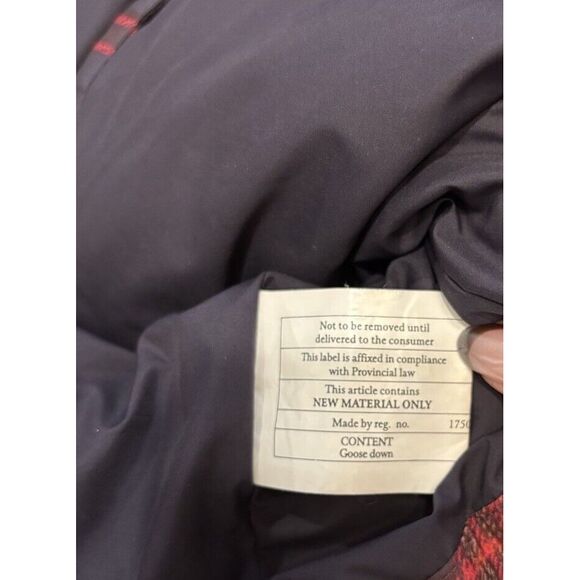 Not to be removed until
delivered to the consumer
This label is affixed in compliance
with Provincial law
This article contains
NEW MATERIAL ONLY
Made by reg. no. 1750
CONTENT
Goose down